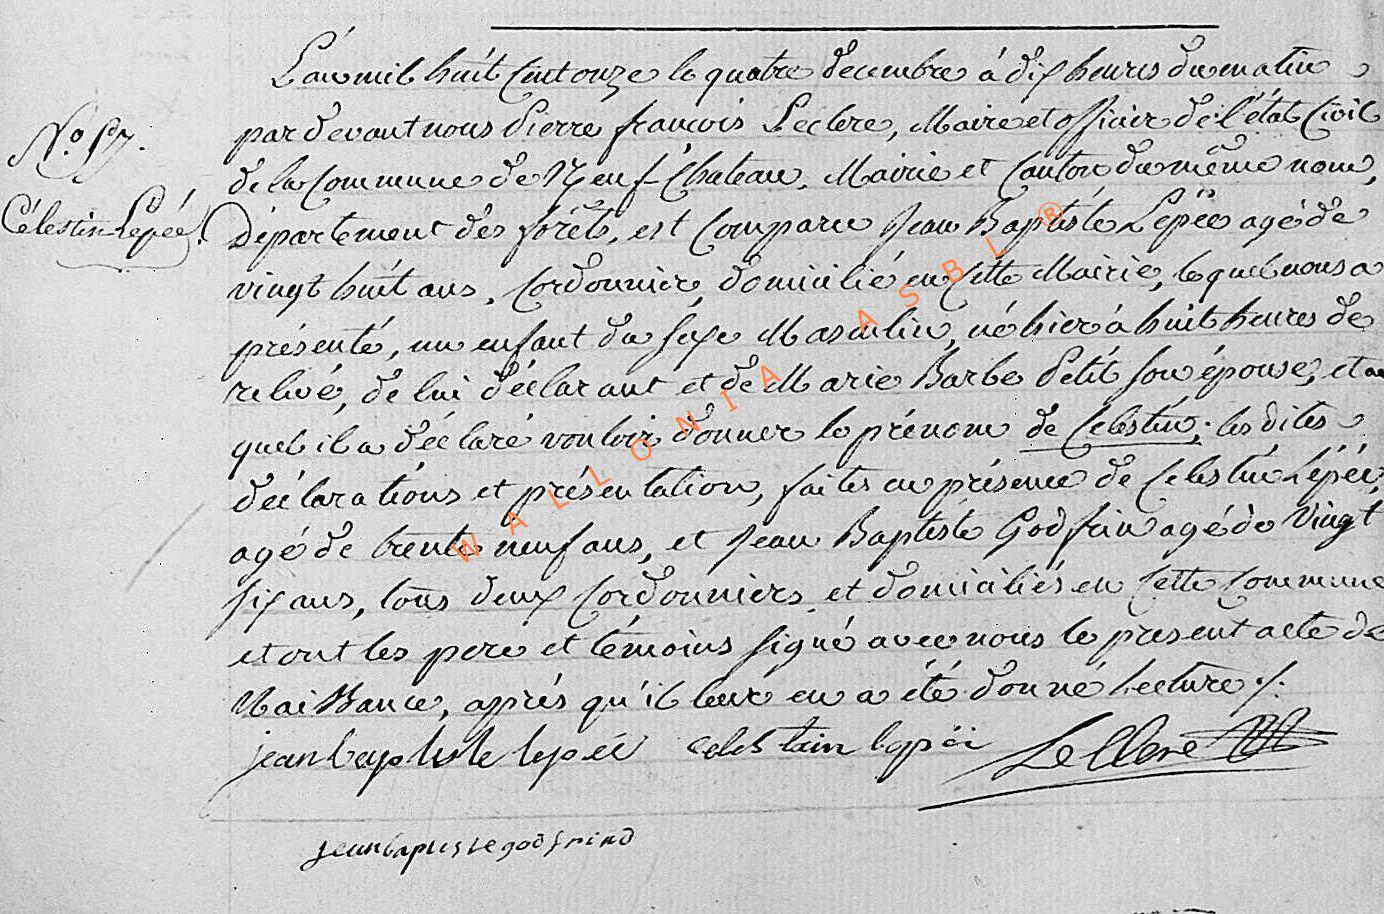 L'an mil huit cent onze le quatre decembre à dix heures du matin
par devant nous Pierre françois Leclere, Maire et officier de l'état Civil
N.o 57.
de la Commune de Neuf-Chateau, Mairie et Canton du même nom,
Célestin Lepée.
Département des forêts, est Comparu Jean Baptiste Lepée agé de
vingt huit ans, Cordonnier, domicilié en Cette Mairie, lequel nous a
présenté, un enfant du sexe Masculin, né hier à huit heures de
relevé, de lui déclarant et de Marie Barbe Petit son épouse, et au
quel il a déclaré vouloir donner le prénom de Celestin; les dites
déclarations et présentation, faites en présence de Celestin Lépée,
agé de trente neuf ans, et Jean Baptiste Godfrin agé de Vingt
six ans, tous deux Cordonniers et domiciliés en Cette Commune
et ont les pere et témoins signé avec nous le present acte de
Naissance, après qu'il leur en a été donné Lecture ./.
jean baptiste lepée celestain lepéé Leclere
jean baptiste godfrind
WALLONIA ASBL ®